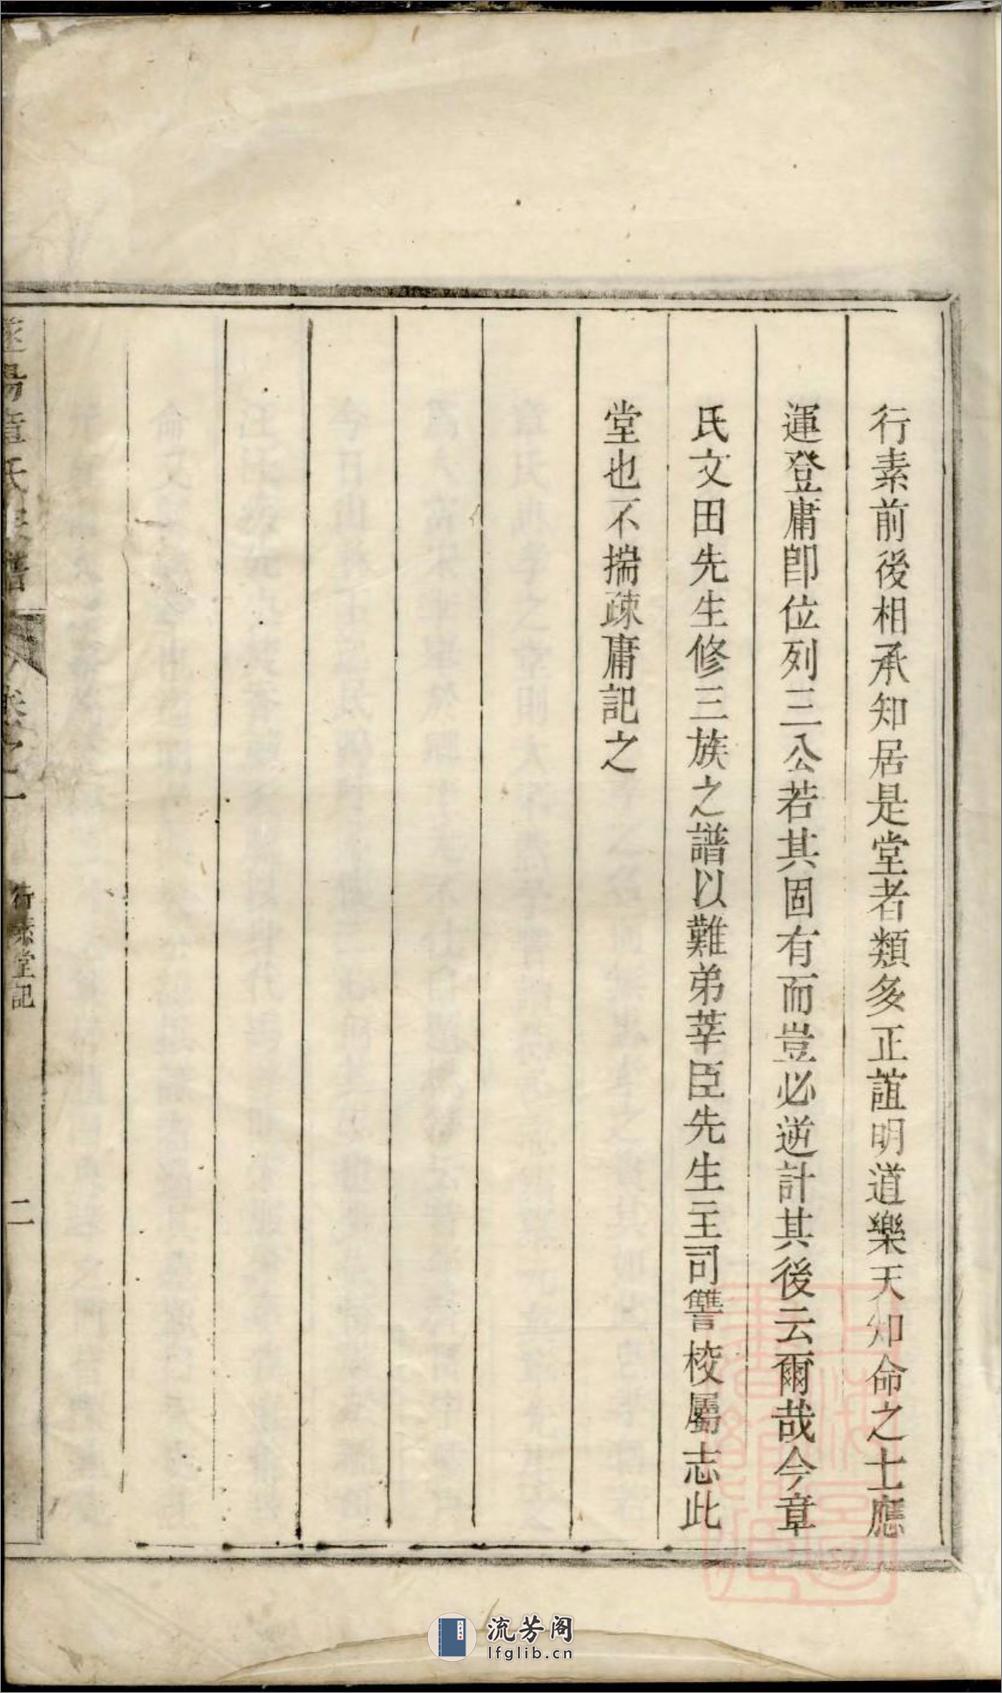 行素前後相承知居是堂者類多正誼明道樂天知命之士應
運登庸卽位列三公若其固有而豈必逆計其後云爾哉今章
氏文田先生修三族之譜以難弟莘臣先生主司讐校屬志此
堂也不揣疎庸記之
氏 譜
卷之一
行素堂記
二
流芳阁
lfglib.cn